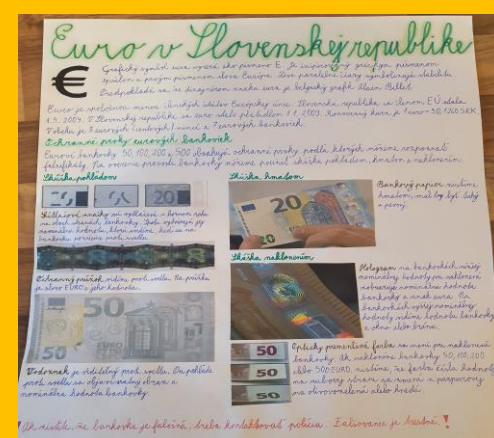 Euro v Slovenskej republike
€ Grafický symbol eura vyzerá ako písmeno E. Je inšpirovaný gréckym písmenom
epsilon a prvým písmenom slova Európa. Dve paralelné čiary symbolizujú stabilitu.
Predpokladá sa, že dizajnérom znaku eura je belgický grafik Alain Billet.
Euro je spoločnou menou členských štátov Európskej únie. Slovenská republika sa členom EÚ stala
1.5. 2004. V Slovenskej republike sa euro stalo platidlom 1.1. 2009. Konverzný kurz je 1euro = 30,1260 SKK.
V obehu je 8 eurových (centových) mincí a 7 eurových bankoviek.
Ochranné prvky eurových bankoviek
Eurové bankovky 50, 100, 200 a 500 obsahujú ochranné prvky podľa ktorých môžeme rozpoznať
falzifikáty. Na overenie pravosti bankovky môžeme použiť skúšku pohľadom, hmatom a naklonením.
Skúška pohľadom
20
znaky sú v hornom rohu
na oboch stranách bankovky. Spolu vytvoria jej
nominálnu hodnotu, ktorú vidíme, keď sa na
bankovku pozrieme proti svetlu.
Ochranný prúžok vidíme proti svetlu. Na prúžku
je slovo EURO a jeho hodnota.
50
Vodoznak je viditeľný proti svetlu. Pri pohľade
proti svetlu sa objaví obraz a
nominálna hodnota bankovky.
Skúška hmatom
20
Bankový papier cítime
hmatom, má byť tuhý
a pevný.
Skúška naklonením
Hologram na bankovkách nižšej
nominálnej hodnoty po naklonení
zobrazuje nominálnu hodnotu
bankovky a znak eura. Na
bankovkách vyššej nominálnej
hodnoty vidíme hodnotu bankovky
a okno alebo bránu.
50
50
50
Opticky premenlivá farba sa mení pri naklonení
bankovky. Ak nakloníme bankovky 50, 100, 200
alebo 500 EURO, vidíme, že farba čísla hodnoty
na rubovej strane sa zmení z purpurovej
na olivovozelenú alebo hnedú.
! Ak zistíte, že bankovka je falošná, treba kontaktovať políciu. Falšovanie je trestné. !